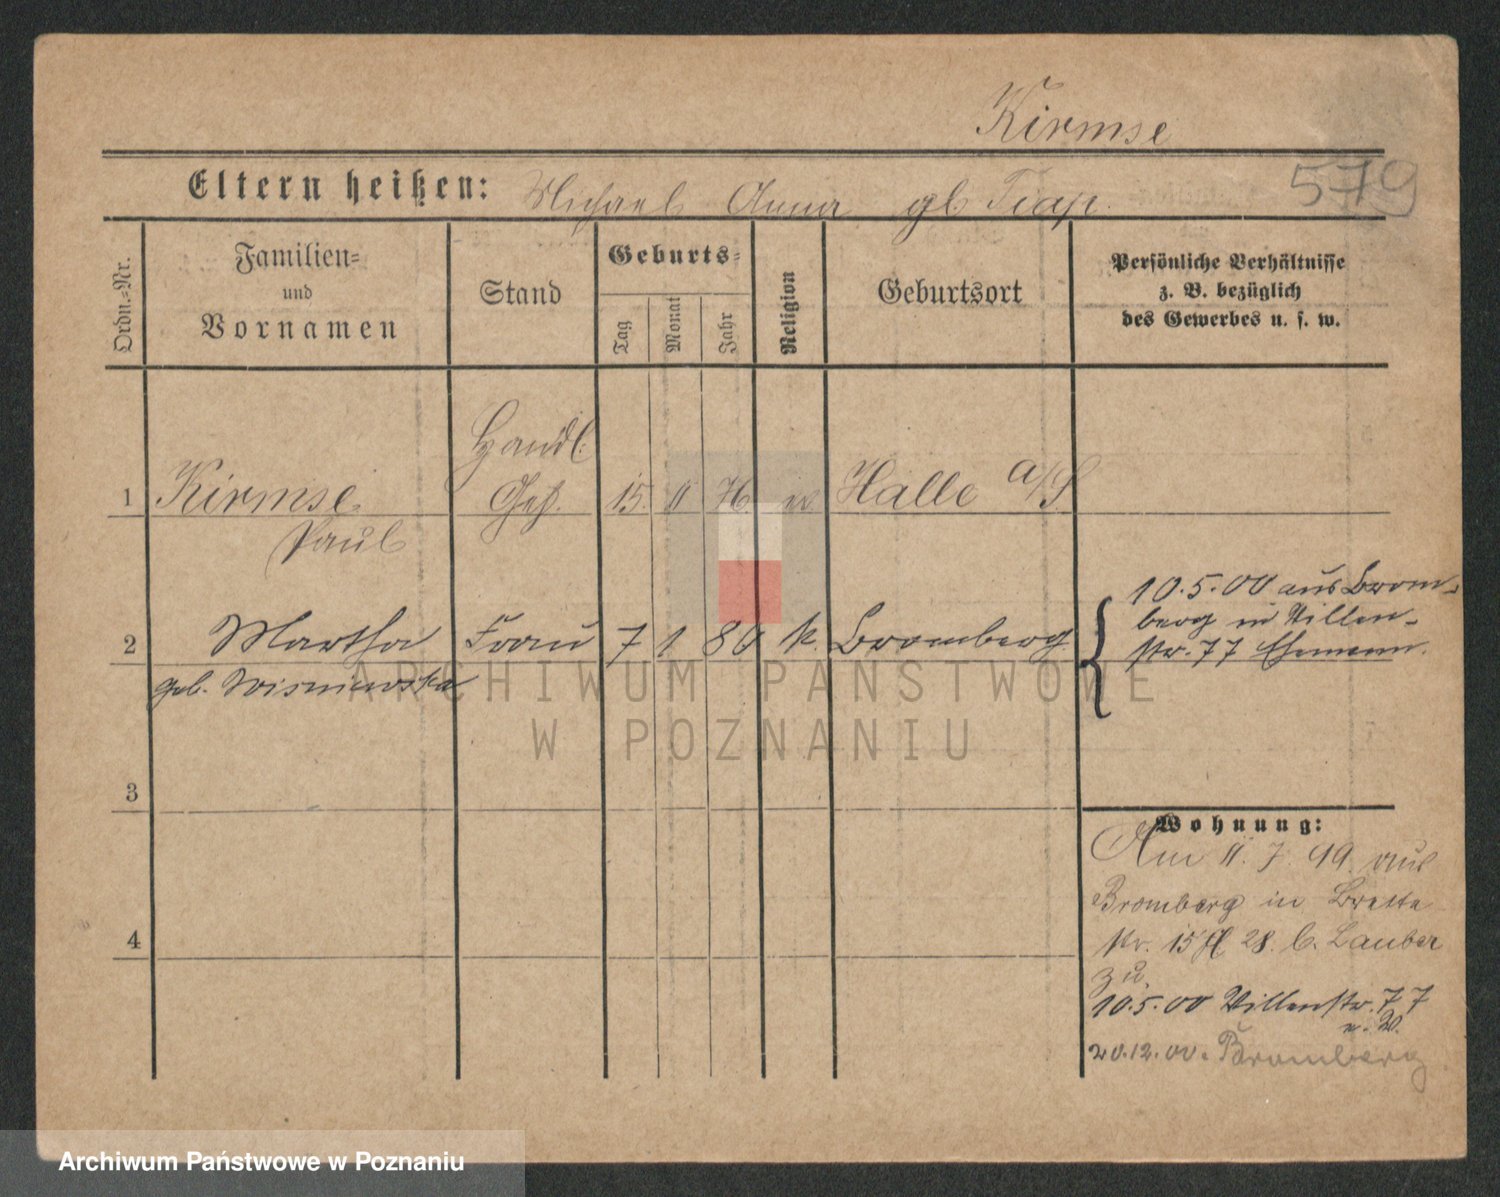 Kirmse
579
Eltern heißen: Michael Anna gb
Ordn.=Nr.
Familien=
und
Vornamen
Stand
Geburts=
Tag
Monat
Jahr
Religion
Geburtsort
Persönliche Verhältnisse
z. B. bezüglich
des Gewerbes u. s. w.
Handl.
1 Kirmse Geh. 15. 11 76 Halle a/S
Paul
10.5.00 aus Brom-
berg in Villen-
str. 77 Ehemann.
2 Martha Frau 7 1 80 k. Bromberg
geb. Wisniewska
ARCHIWUM PAŃSTWOWE
W POZNANIU
3
Wohnung:
Am 11. 7. 99. aus
Bromberg in Breite
str. 15 28. b. Lauber
zu.
4
10.5.00 Villenstr. 77
n. W.
20.12.00. Bromberg
Archiwum Państwowe w Poznaniu